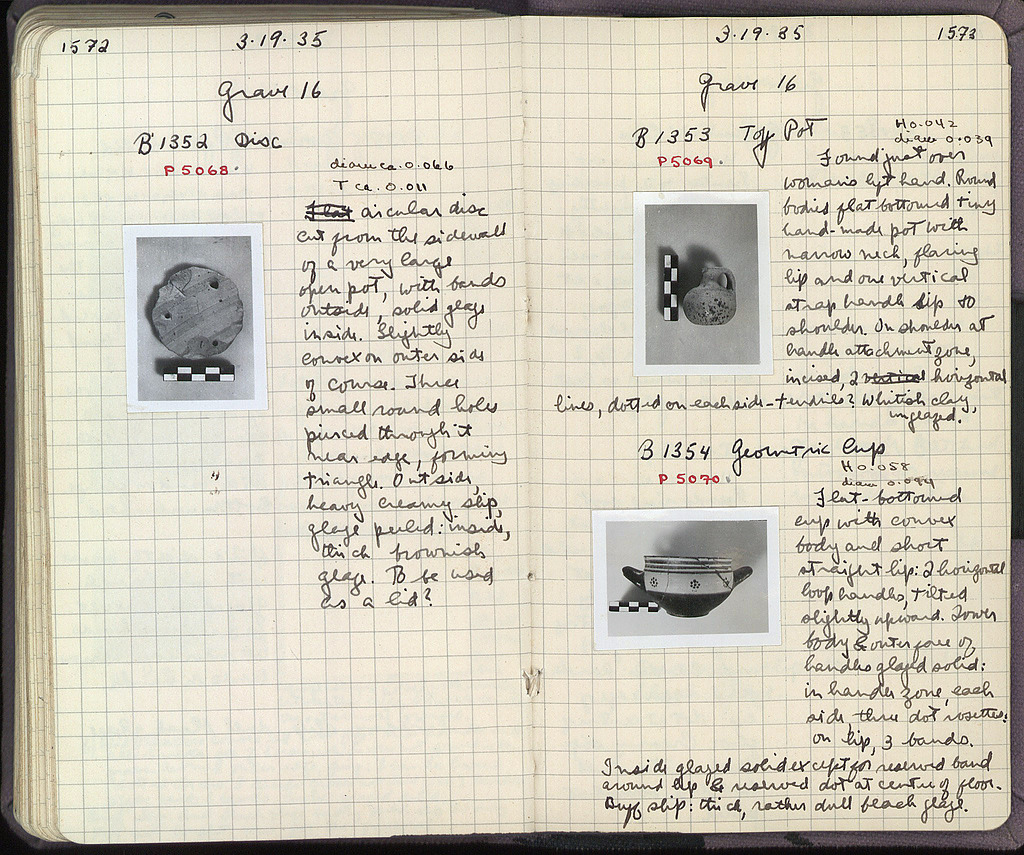 1572
3·19·35
Grave 16
B 1352 Disc
P 5068·
diam ca. 0.066
T ca. 0.011
circular disc
cut from the sidewall
of a very large
open pot, with bands
outside, solid glaze
inside. Slightly
convex on outer side
of course. Three
small round holes
pierced through it
near edge, forming
triangle. Outside,
heavy creamy slip,
glaze peeled: inside,
thick brownish
glaze. To be used
as a lid?
3·19·35
1573
Grave 16
B 1353 Toy Pot
P 5069·
H 0.042
diam 0.039
Found just over
woman's left hand. Round
bodied flat bottomed tiny
hand-made pot with
narrow neck, flaring
lip and one vertical
strap handle lip to
shoulder. On shoulder at
handle attachment zone,
incised, 2 vertical horizontal
lines, dotted on each side - tendrils? Whitish clay,
unglazed.
B 1354 Geometric Cup
P 5070·
H 0.058
diam 0.094
Flat-bottomed
cup with convex
body and short
straight lip: 2 horizontal
loop handles, tilted
slightly upward. Lower
body & outer face of
handles glazed solid:
in handle zone, each
side, three dot rosettes:
on lip, 3 bands.
Inside glazed solid except for reserved band
around lip & reserved dot at centre of floor.
Buff slip: thick, rather dull black glaze.